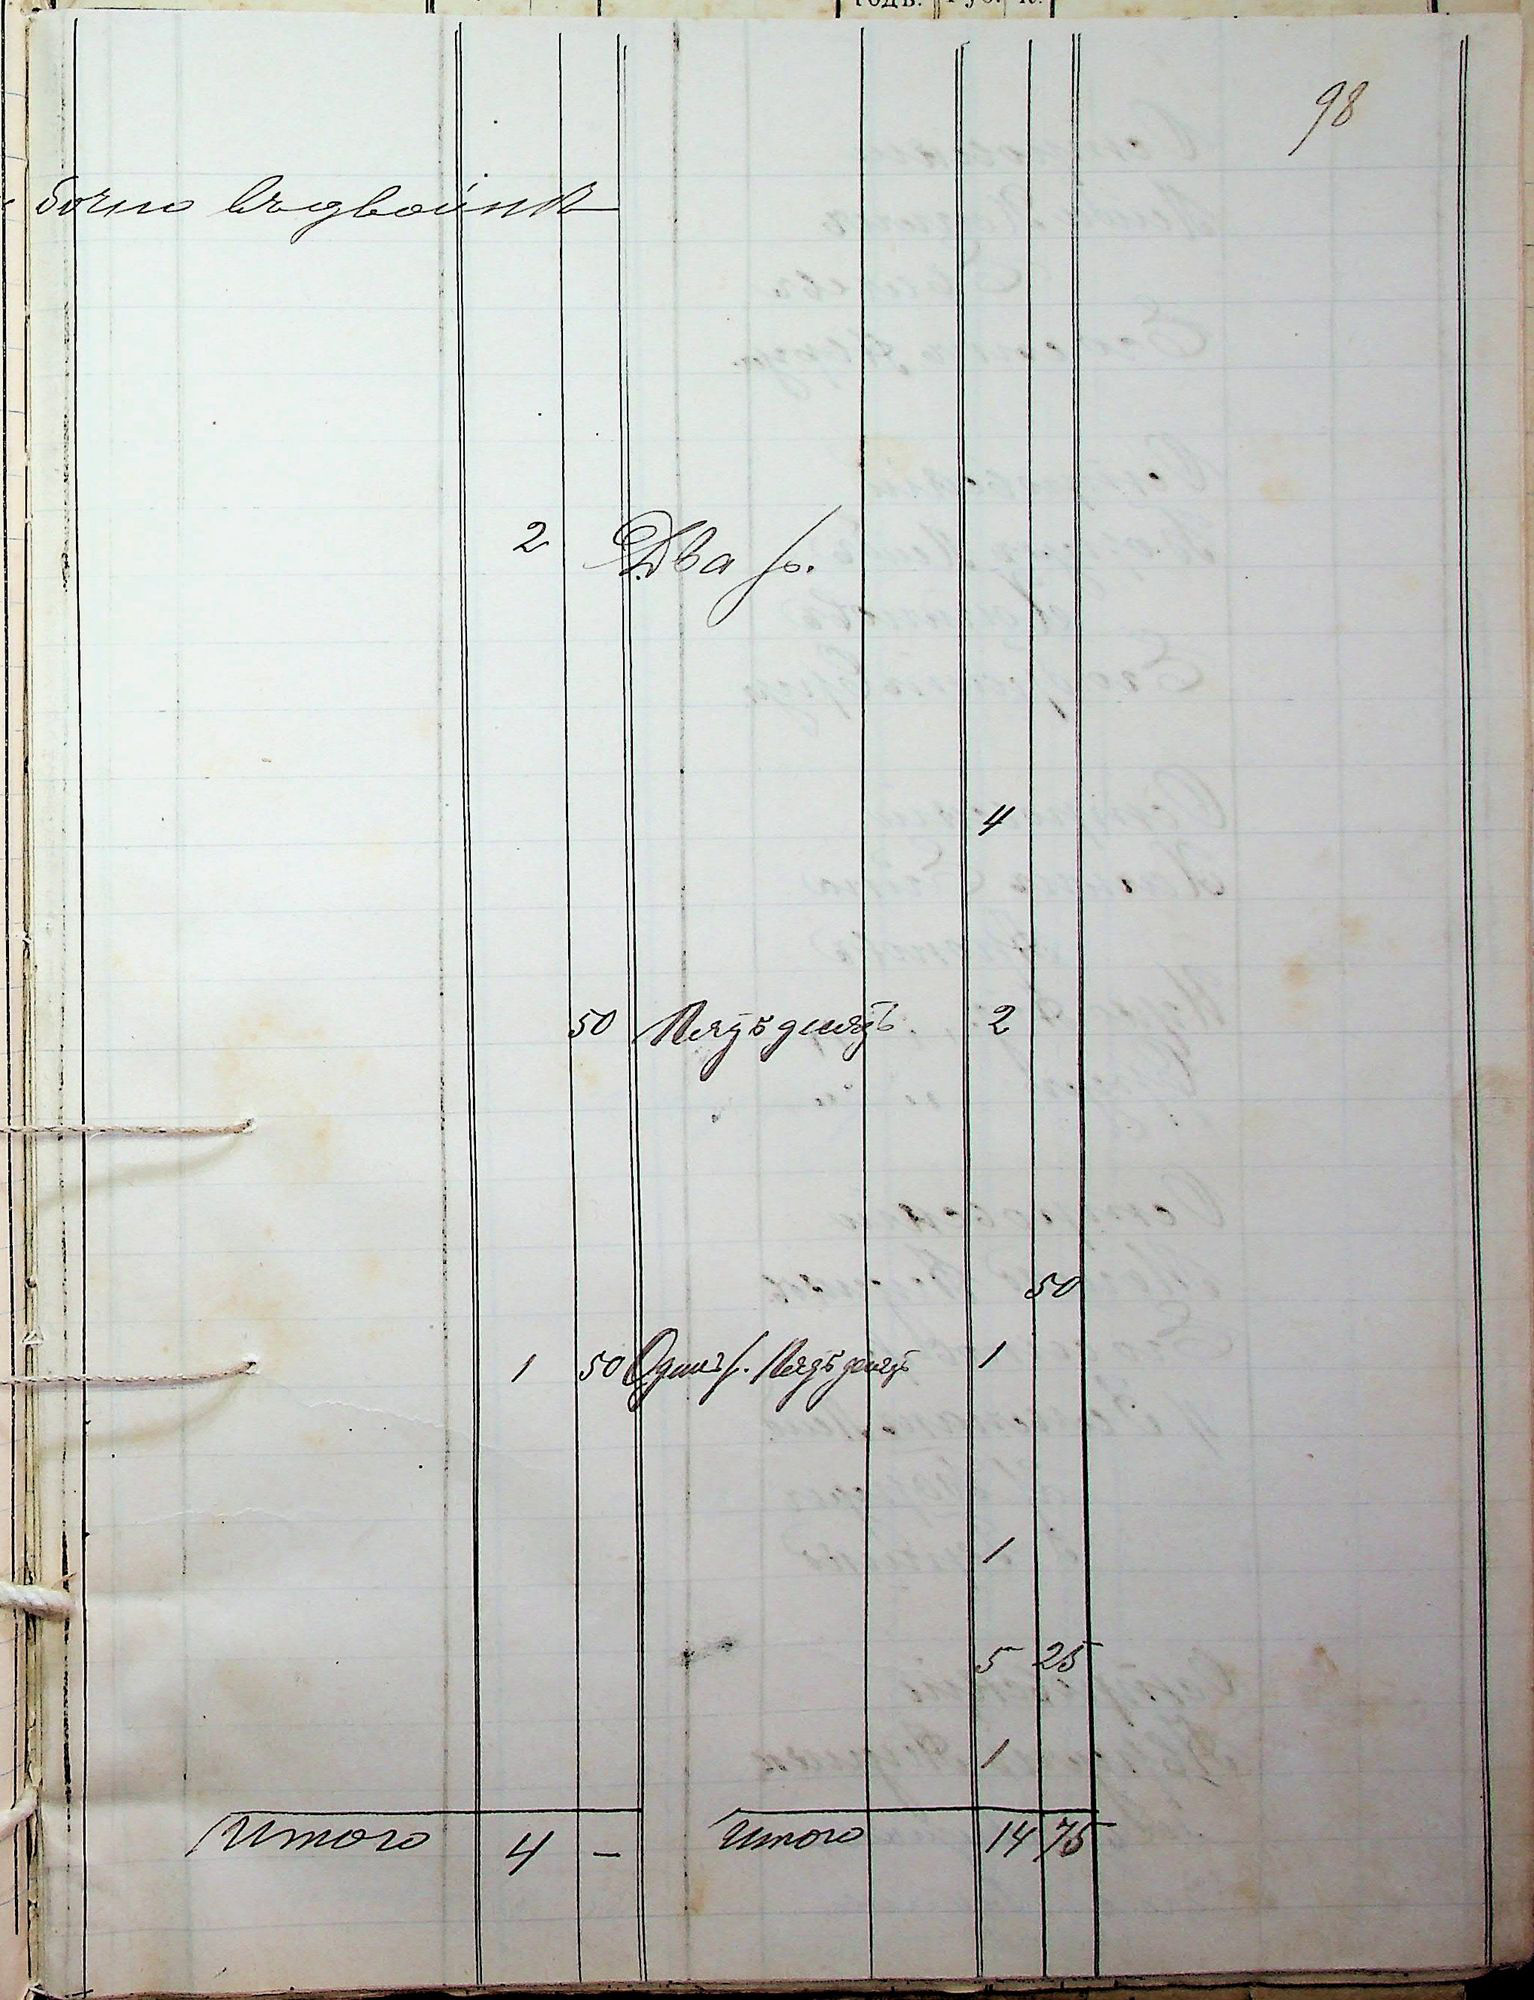 годъ. Руб. К.
98
2 Два р.
4
50 Пятьдесят 2
50
1 50 Один р. Пятьдесят 1
1
5 25
1
Итого 4 — Итого 14 75